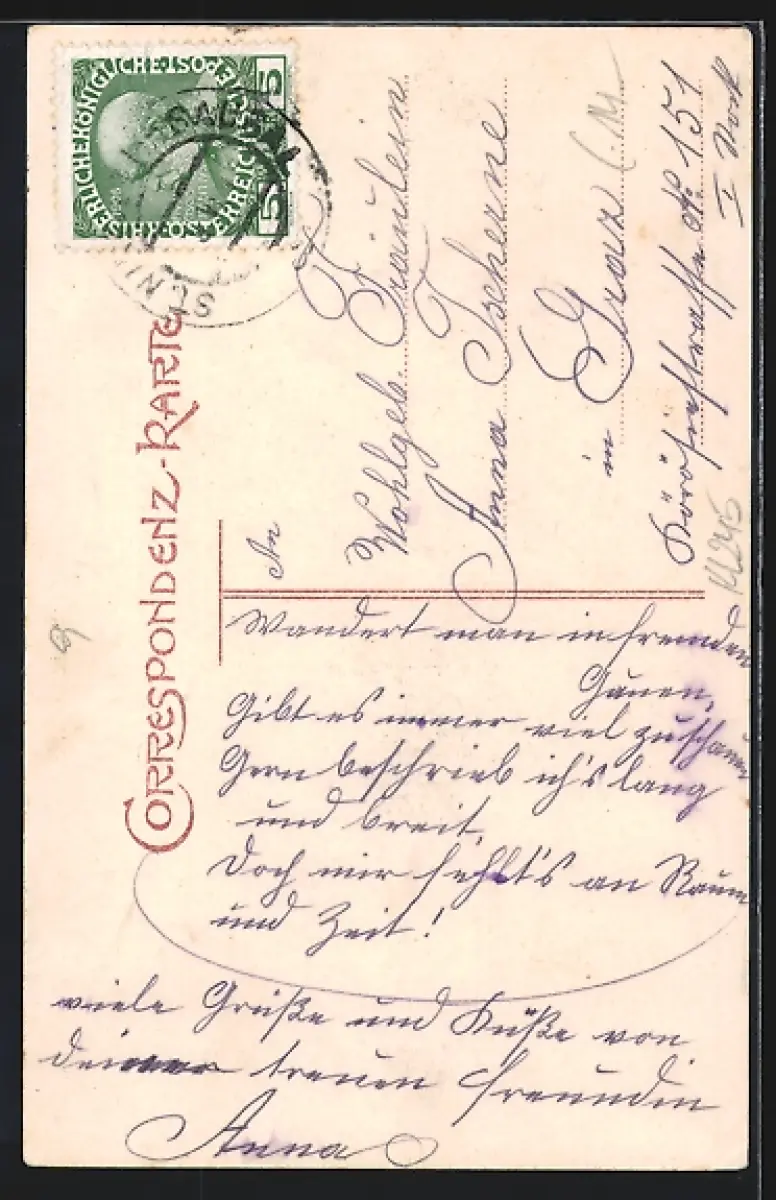 KAISERLICHE KÖNIGLICHE ÖSTERREICHISCHE POST
5 5
ST. NI
CORRESPONDENZ-KARTE
An
Wohlgeb. Fräulein
Anna Tscherne
in Graz
Körösistraße No 151
I. Stock
14245
Wandert man in fremden
Gauen,
Gibt es immer viel zu schauen
Gern beschrieb ich's lang
und breit,
Doch mir fehlt's an Raum
und Zeit!
viele Grüße und Küße von
deiner treuen Freundin
Anna